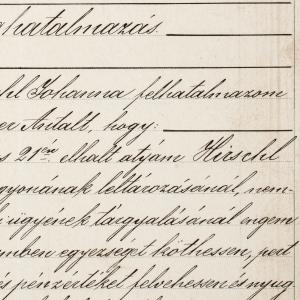 hatalmazás.
hl Johanna felhatalmazom
er Antalt, hogy:
s 21én elhalt atyám Hirschl
gyonának leltározásánál, nem-
i ügyének tárgyalásánál engem
emben egyezséget köthessen, pert
és pénzértéket felvehessen és nyug